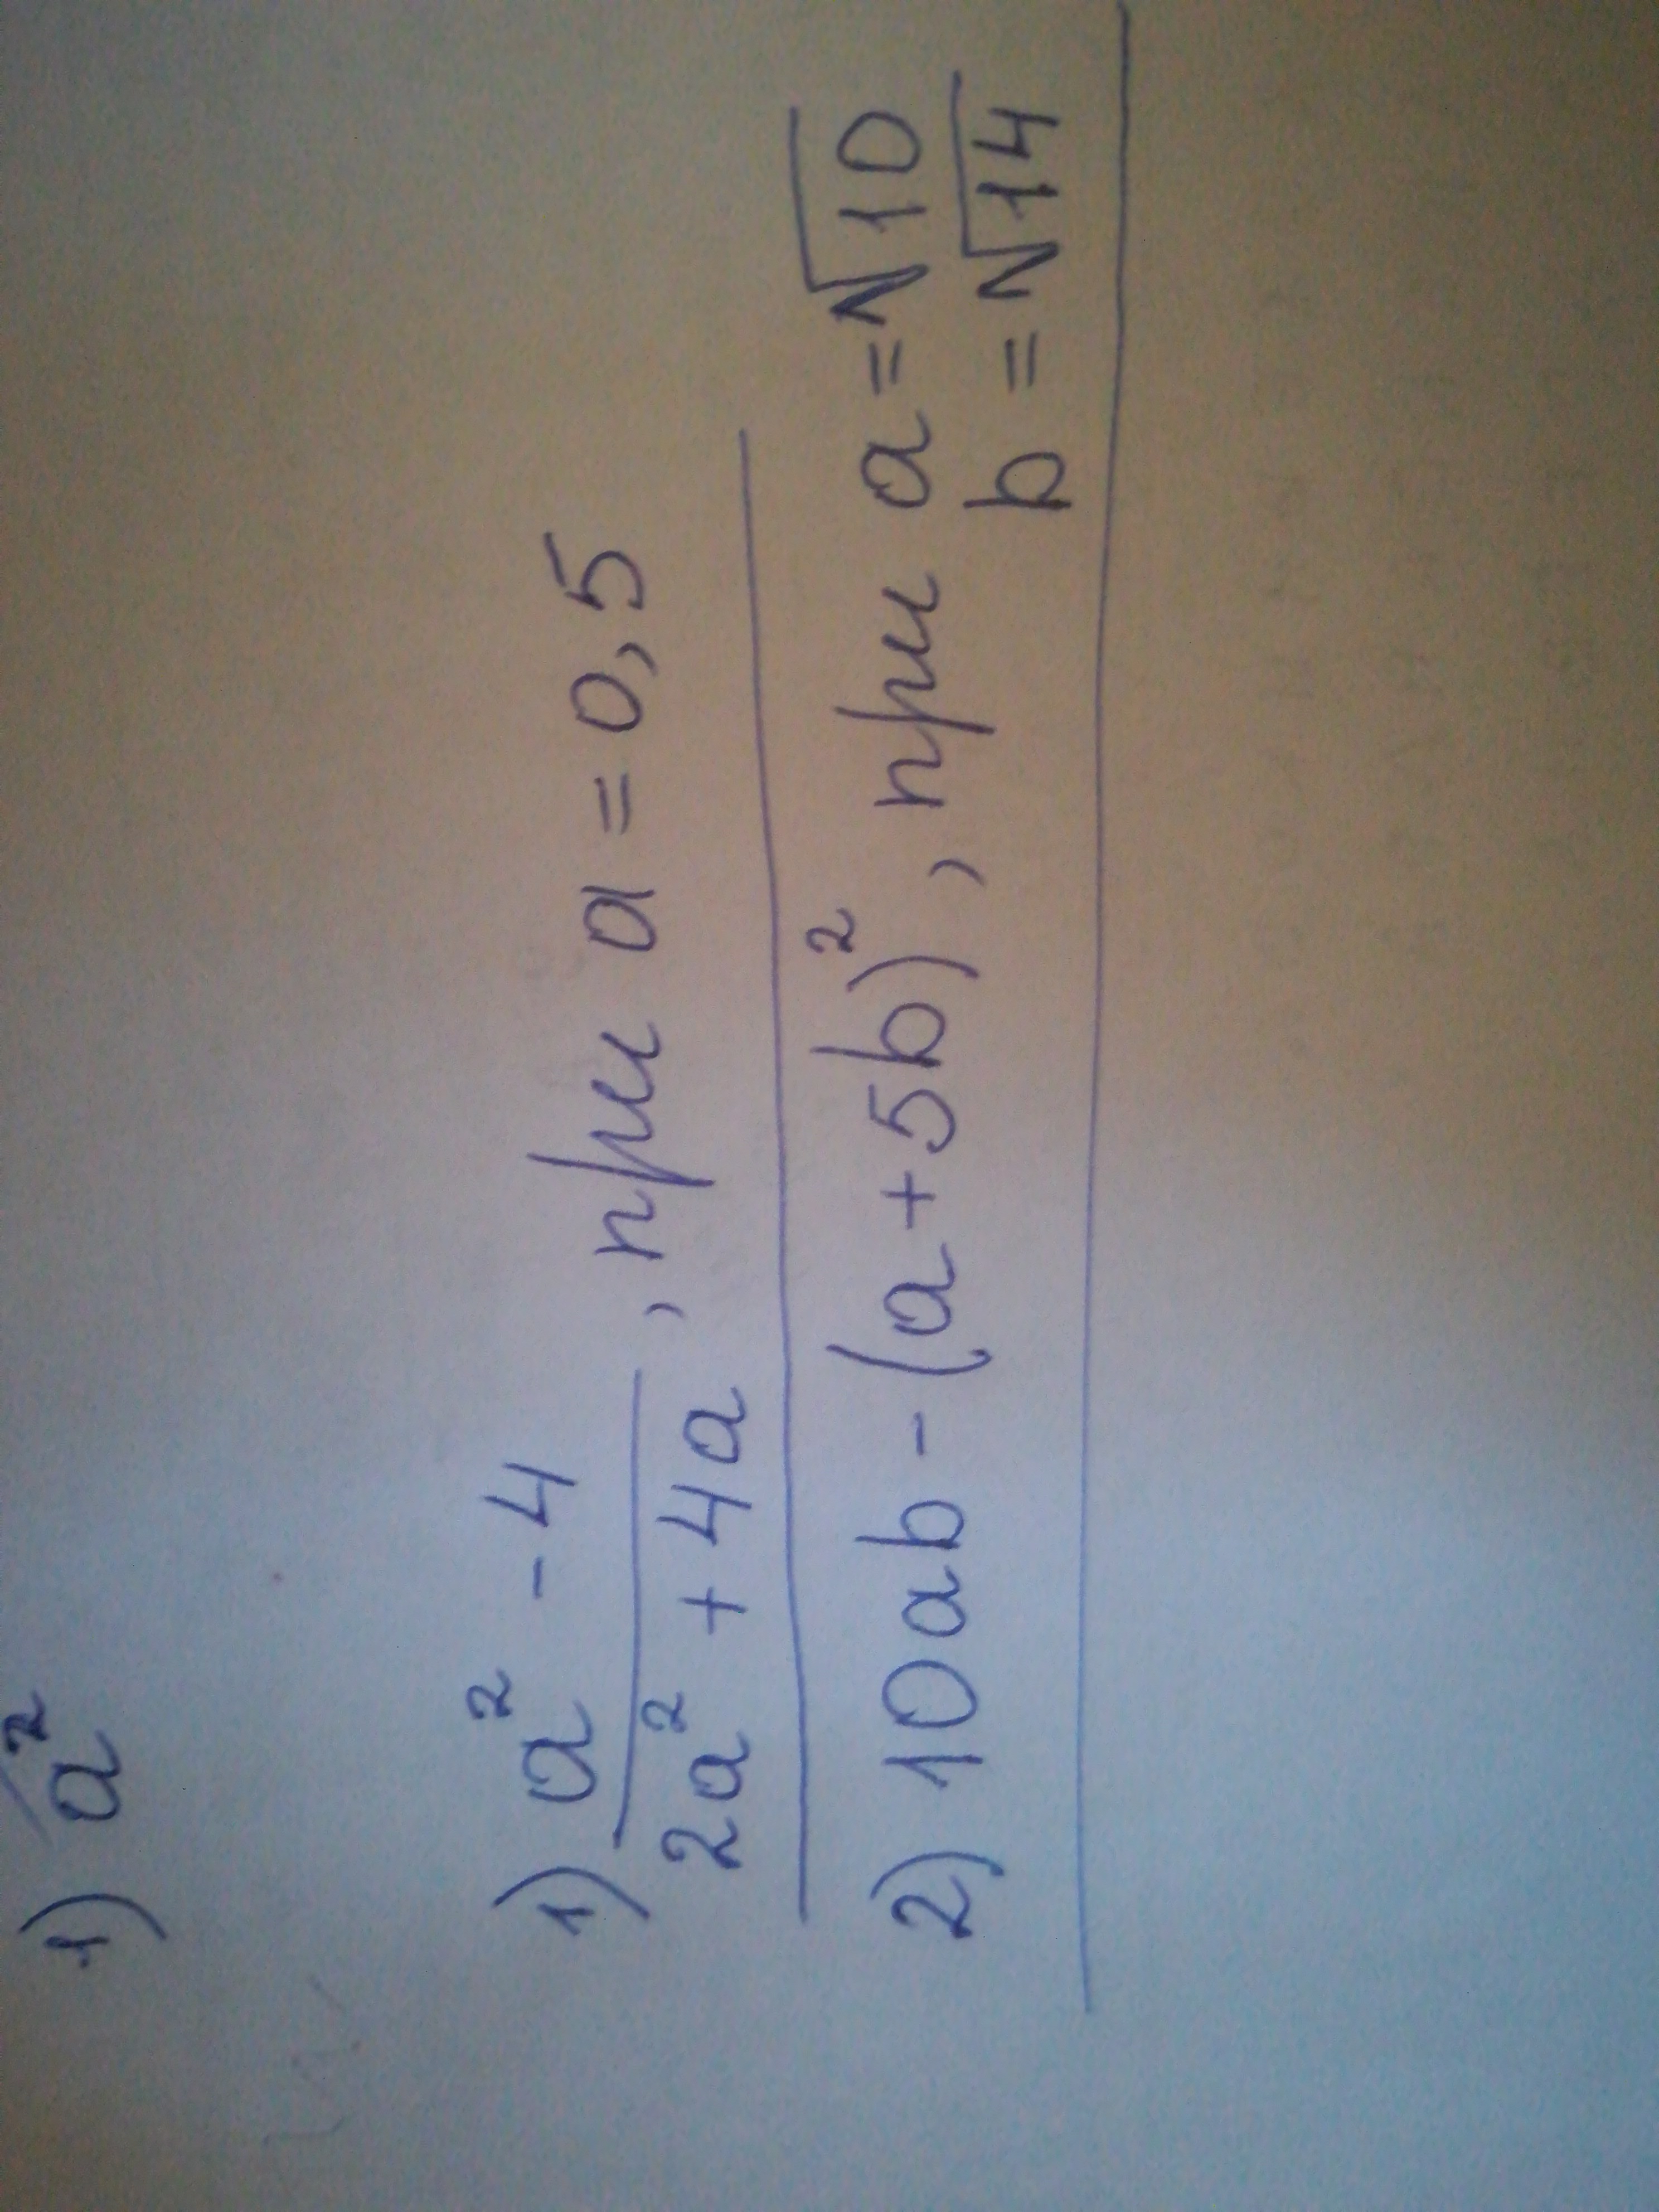 1) a²
1) a² - 4
2a² + 4a , при a = 0,5
2) 10ab - (a + 5b)² , при a = √10
b = √14